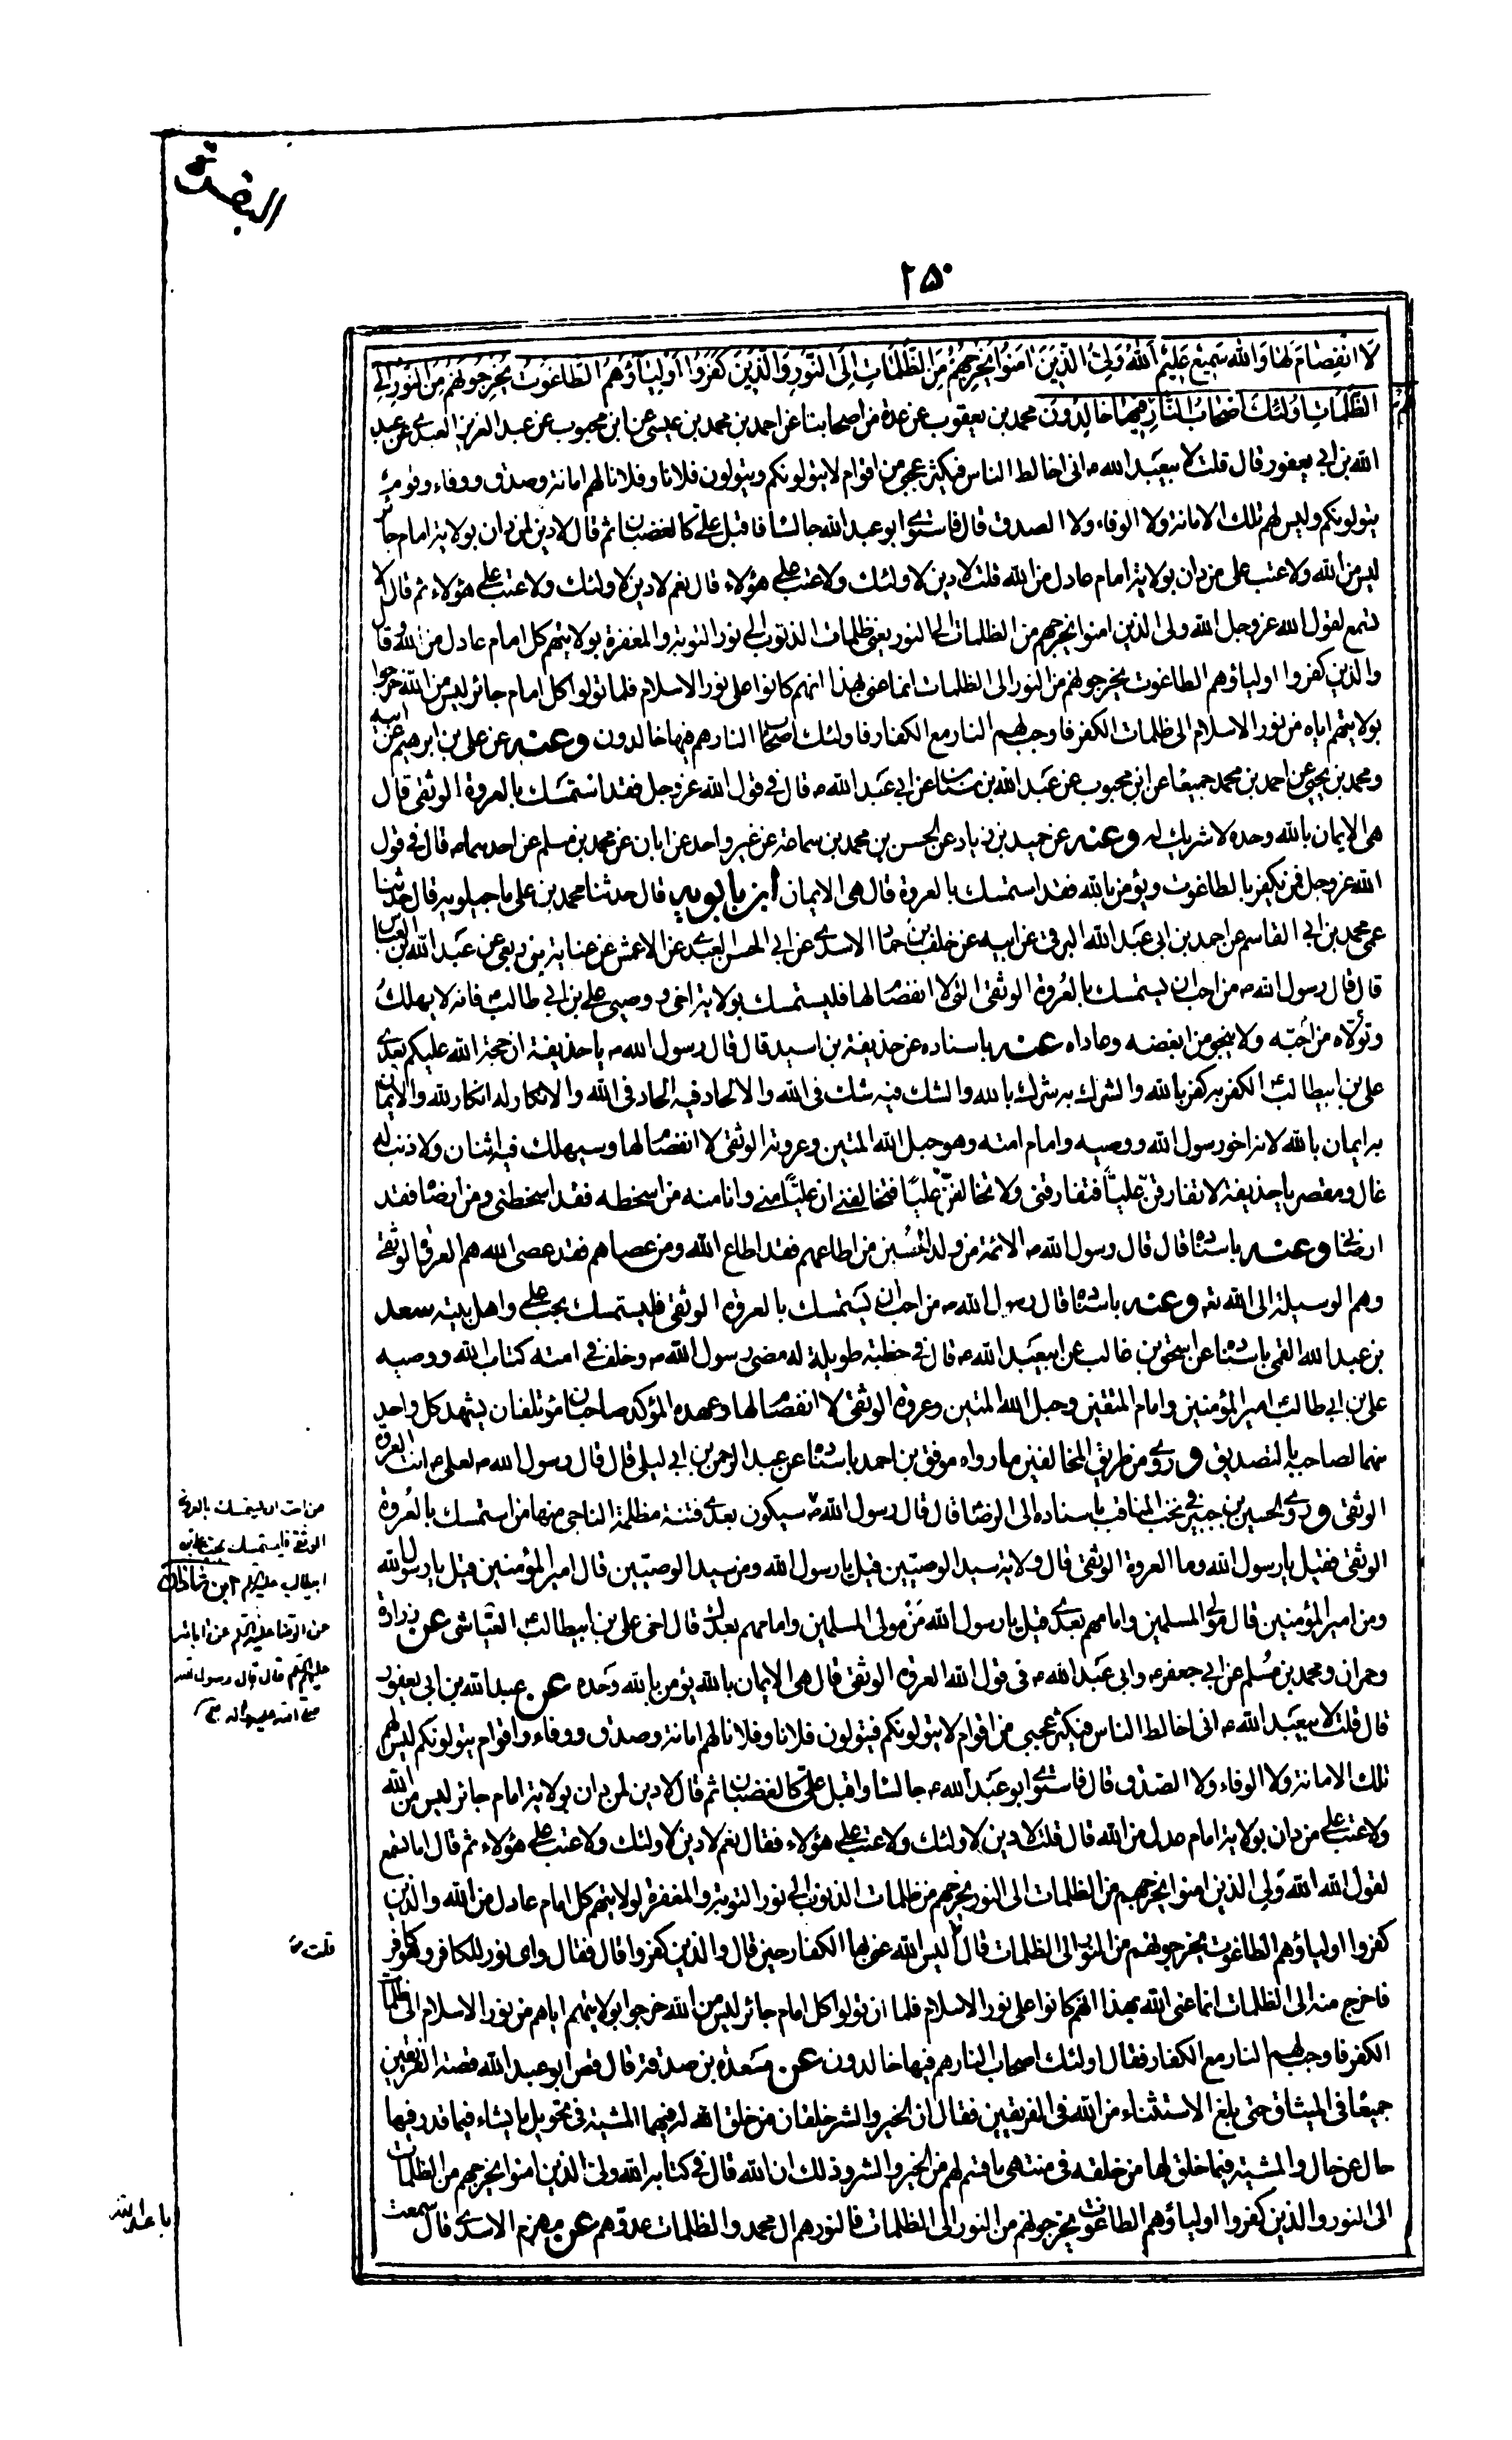 البقرة
۲۵۰
لَا انْفِصَامَ لَهَا وَاللهُ سَمِيعٌ عَلِيمٌ اللهُ وَلِيُّ الَّذِينَ امَنُوا يُخْرِجُهُمْ مِنَ الظُّلُمَاتِ اِلَى النُّورِ وَالَّذِينَ كَفَرُوا اَوْلِيَاؤُهُمُ الطَّاغُوتُ يُخْرِجُونَهُمْ مِنَ النُّورِ اِلَى
الظُّلُمَاتِ اُولٰئِكَ اَصْحَابُ النَّارِ هُمْ فِيهَا خَالِدُونَ محمد بن يعقوب عن عدة من اصحابنا عن احمد بن محمد بن عيسى عن ابن محبوب عن عبد العزيز العبدى عن عبد
الله بن ابى يعفور قال قلت لابيعبد الله ع انى اخالط الناس فيكثر عجبى من اقوام لا يتولونكم ويتولون فلانا وفلانا لهم امانة وصدق ووفاء وقوم
يتولونكم وليس لهم تلك الامانة ولا الوفاء ولا الصدق قال فاستوى ابو عبد الله جالسا فاقبل علىّ كالغضبان ثم قال لا دين لمن دان بولاية امام جائر
ليس من الله ولا عتب على من دان بولاية امام عادل من الله قلت لا دين لاولئك ولا عتب على هؤلاء قال نعم لا دين لاولئك ولا عتب على هؤلاء ثم قال الا
تسمع لقول الله عز وجل الله ولى الذين امنوا يخرجهم من الظلمات الى النور يعنى ظلمات الذنوب الى نور التوبة والمغفرة بولايتهم كل امام عادل من الله وقال
والذين كفروا اولياؤهم الطاغوت يخرجونهم من النور الى الظلمات انما عنى بهذا انهم كانوا على نور الاسلام فلما تولوا كل امام جائر ليس من الله خرجوا
بولايتهم اياه من نور الاسلام الى ظلمات الكفر فاوجب لهم النار مع الكفار فاولئك اصحاب النار هم فيها خالدون وعنه عن على بن ابرهيم عن ابيه
ومحمد بن يحيى عن احمد بن محمد جميعا عن ابن محبوب عن عبد الله بن سنان عن ابى عبد الله ع قال فى قول الله عز وجل فقد استمسك بالعروة الوثقى قال
هى الايمان بالله وحده لا شريك له وعنه عن حميد بن زياد عن الحسن بن محمد بن سماعة عن غير واحد عن ابان عن محمد بن مسلم عن احدهما ع قال فى قول
الله عز وجل فمن يكفر بالطاغوت ويؤمن بالله فقد استمسك بالعروة قال هى الايمان ابن بابويه قال حدثنا محمد بن على ماجيلويه قال حدثنا
عمى محمد بن ابى القاسم عن احمد بن ابى عبد الله البرقى عن ابيه عن خلف بن حماد الاسدى عن ابى الحسن العبدى عن الاعمش عن عباية بن ربعى عن عبد الله بن العباس
قال قال رسول الله ص من احب ان يستمسك بالعروة الوثقى التى لا انفصام لها فليستمسك بولاية اخى ووصيى على بن ابى طالب فانه لا يهلك
وتولاه من احبّه ولا ينجو من ابغضه وعاداه عنه باسناده عن حذيفة بن اسيد قال قال رسول الله ص يا حذيفة ان حجة الله عليكم بعدى
على بن ابيطالب الكفر به كفر بالله والشرك به شرك بالله والشك فيه شك فى الله والالحاد فيه الحاد فى الله والانكار له انكار لله والايمان
به ايمان بالله لانه اخو رسول الله ووصيه وامام امته وهو حبل الله المتين وعروته الوثقى لا انفصام لها وسيهلك فيه اثنان ولا ذنب له
غال ومقصر يا حذيفة لا تفارقن عليّاً فتفارقنى ولا تخالفن عليّا فتخالفنى ان عليّا منى وانا منه من اسخطه فقد اسخطنى ومن ارضاه فقد
ارضانى وعنه باسناده قال قال رسول الله ص الائمة من ولد الحسين من اطاعهم فقد اطاع الله ومن عصاهم فقد عصى الله هم العروة الوثقى
وهم الوسيلة الى الله تعه وعنه باسناده قال رسول الله ص من احب ان يستمسك بالعروة الوثقى فليستمسك بحب على واهل بيته سعد
بن عبد الله القمى باسناده عن اسحق بن غالب عن ابيعبد الله ع قال فى خطبة طويلة له مضى رسول الله ص وخلف فى امته كتاب الله ووصيه
على بن ابى طالب امير المؤمنين وامام المتقين وحبل الله المتين وعروة الوثقى لا انفصام لها وعهده المؤكد صاحبان مؤتلفان يشهد كل واحد
منهما لصاحبه بالتصديق وروى من طريق المخالفين ما رواه موفق بن احمد باسناده عن عبد الرحمن بن ابى ليلى قال قال رسول الله ص لعلى ع انت العروة
الوثقى وروى الحسين بن جبير فى نخب المناقب باسناده الى الرضا قال قال رسول الله ص سيكون بعدى فتنة مظلمة الناجى منها من استمسك بالعروة
الوثقى فقيل يا رسول الله وما العروة الوثقى قال ولاية سيد الوصيّين قيل يا رسول الله ومن سيد الوصيّين قال امير المؤمنين قيل يا رسول الله
ومن امير المؤمنين قال مولى المسلمين وامامهم بعدى قيل يا رسول الله مَنْ مولى المسلمين وامامهم بعدك قال اخى على بن ابيطالب العياشى عن زرارة
وحمران ومحمد بن مسلم عن ابى جعفر ع وابى عبد الله ع فى قول الله العروة الوثقى قال هى الايمان بالله يؤمن بالله وحده عن عبد الله بن ابى يعفور
قال قلت لابيعبد الله ع انى اخالط الناس فيكثر عجبى من اقوام لا يتولونكم فيتولون فلانا وفلانا لهم امانة وصدق ووفاء واقوام يتولونكم ليس لهم
تلك الامانة ولا الوفاء ولا الصدق قال فاستوى ابو عبد الله ع جالسا واقبل علىّ كالغضبان ثم قال لا دين لمن دان بولاية امام جائر ليس من الله
ولا عتب على من دان بولاية امام عدل من الله قال قلت لا دين لاولئك ولا عتب على هؤلاء فقال نعم لا دين لاولئك ولا عتب على هؤلاء ثم قال اما تسمع
لقول الله الله ولى الذين امنوا يخرجهم من الظلمات الى النور يخرجهم من ظلمات الذنوب الى نور التوبة والمغفرة لولايتهم كل امام عادل من الله والذين
كفروا اولياؤهم الطاغوت يخرجونهم من النور الى الظلمات قال اليس الله عنى بها الكفار حين قال والذين كفروا قال فقال واى نور للكافر وهو كافر
فاخرج منه الى الظلمات انما عنى الله بهذا انهم كانوا على نور الاسلام فلما ان تولوا كل امام جائر ليس من الله خرجوا بولايتهم اياهم من نور الاسلام الى ظلمات
الكفر فاوجب لهم النار مع الكفار فقال اولئك اصحاب النار هم فيها خالدون عن مسعدة بن صدقة قال قص ابو عبد الله قصة الفريقين
جميعا فى الميثاق حتى بلغ الاستثناء من الله فى الفريقين فقال ان الخير والشر خلقان من خلق الله له فيهما المشية فى تحويل ما يشاء فيما قدر فيها
حال عن حال والمشية فيما خلق لها من خلقه فى منتهى ما قسم لهم من الخير والشر وذلك ان الله قال فى كتابه الله ولى الذين امنوا يخرجهم من الظلمات
الى النور والذين كفروا اولياؤهم الطاغوت يخرجونهم من النور الى الظلمات فالنور هم ال محمد والظلمات عدوهم عن مهزم الاسدى قال سمعت
من احب ان يستمسك بالعروة
الوثقى فليستمسك بحب على بن
ابيطالب عليه السلام ابن شاذان
عن الرضا عليه السلام عن ابائه
عليهم السلام قال قال رسول الله
صلى الله عليه واله
قلت
با عبد الله